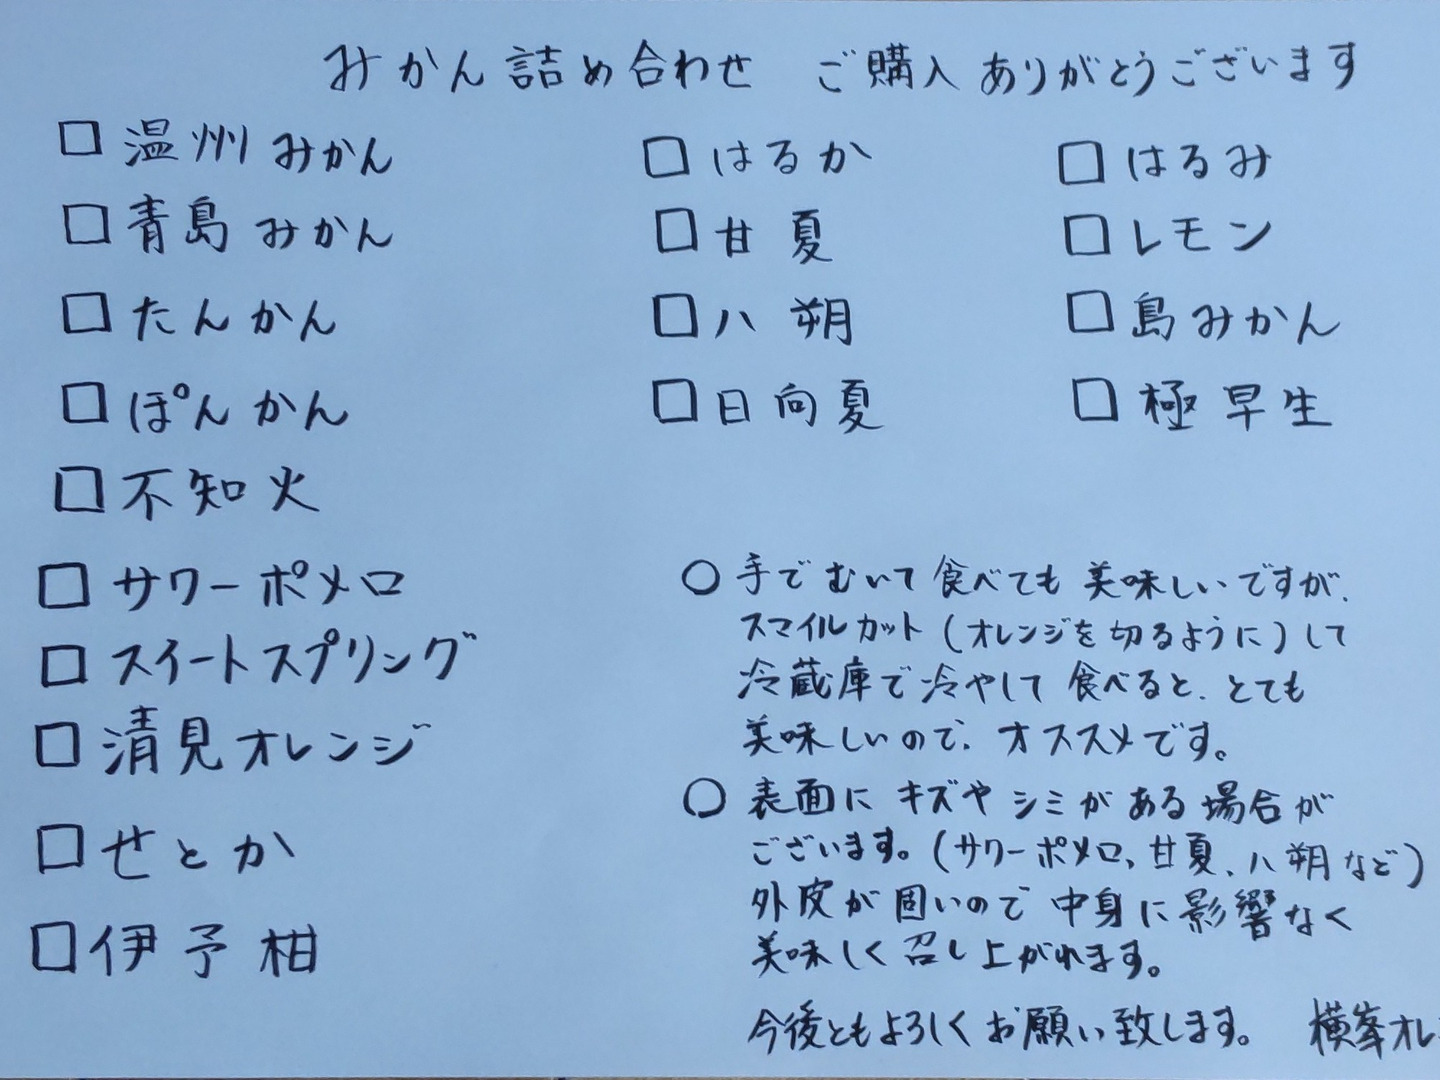 みかん詰め合わせ ご購入ありがとうございます
□ 温州みかん
□ 青島みかん
□ たんかん
□ ぽんかん
□ 不知火
□ サワーポメロ
□ スイートスプリング
□ 清見オレンジ
□ せとか
□ 伊予柑
□ はるか
□ 甘夏
□ 八朔
□ 日向夏
□ はるみ
□ レモン
□ 島みかん
□ 極早生
○ 手でむいて食べても美味しいですが、
スマイルカット(オレンジを切るように)して
冷蔵庫で冷やして食べると、とても
美味しいので、オススメです。
○ 表面にキズやシミがある場合が
ございます。(サワーポメロ、甘夏、八朔など)
外皮が固いので中身に影響なく
美味しく召し上がれます。
今後ともよろしくお願い致します。 横峯オレ